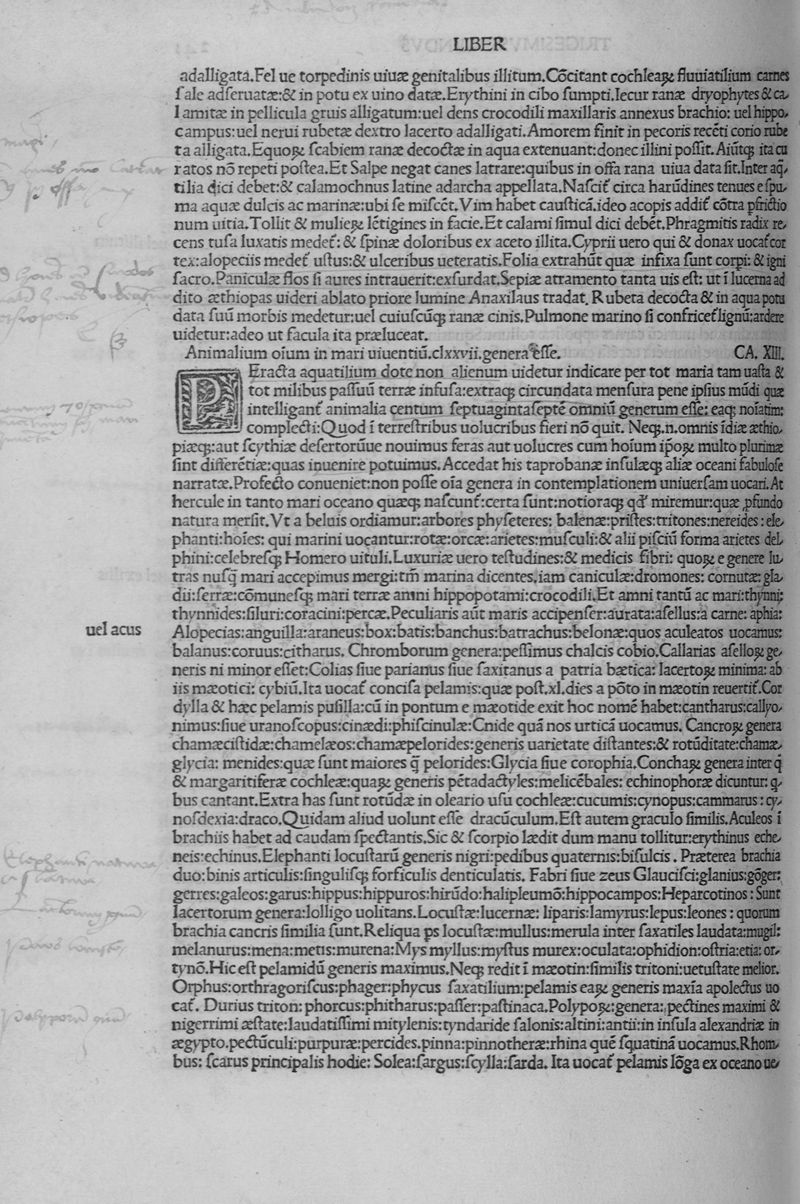 LIBER
adalligata.Fel ue torpedinis uiuæ genitalibus illitum.Cõcitant cochleaꝝ fluuiatilium carnes
ſale adſeruatæ:& in potu ex uino datæ.Erythini in cibo ſumpti.Iecur ranæ dryophytes & ca⸗
lamitæ in pellicula gruis alligatum:uel dens crocodili maxillaris annexus brachio: uel hippo⸗
campus:uel nerui rubetæ dextro lacerto adalligati.Amorem finit in pecoris recẽti corio rube
ta alligata.Equoꝝ ſcabiem ranæ decoctæ in aqua extenuant:donec illini poſſit.Aiũtqꝫ ita cu
ratos nõ repeti poſtea.Et Salpe negat canes latrare:quibus in offa rana uiua data ſit.Inter aq̃⸗
tilia dici debet:& calamochnus latine adarcha appellata.Naſcit̃ circa harũdines tenues e ſpu⸗
ma aquæ dulcis ac marinæ:ubi ſe miſcẽt.Vim habet cauſticã.ideo acopis addit̃ cõtra pfrictio
num uitia.Tollit & mulieꝝ lẽtigines in facie.Et calami ſimul dici debẽt.Phragmitis radix re⸗
cens tuſa luxatis medet̃: & ſpinæ doloribus ex aceto illita.Cyprii uero qui & donax uocat̃ cor
tex:alopeciis medet̃ uſtus:& ulceribus ueteratis.Folia extrahũt quæ infixa ſunt corpi: & igni
ſacro.Paniculæ flos ſi aures intrauerit:exſurdat.Sepiæ atramento tanta uis eſt: ut ĩ lucerna ad
dito æthiopas uideri ablato priore lumine Anaxilaus tradat. Rubeta decocta & in aqua potu
data ſuũ morbis medetur:uel cuiuſcũqꝫ ranæ cinis.Pulmone marino ſi confricet̃ lignũ:ardere
uidetur:adeo ut facula ita præluceat.
Animalium oĩum in mari uiuentiũ.clxxvii.genera eſſe. CA. XIII.
PEracta aquatilium dote non alienum uidetur indicare per tot maria tam uaſta &
tot milibus paſſuũ terræ infuſa:extraqꝫ circundata menſura pene ipſius mũdi quæ
intelligant̃ animalia centum ſeptuagintaſeptẽ omniũ generum eſſe: eaqꝫ noĩatim:
complecti:Quod ĩ terreſtribus uolucribus fieri nõ quit. Neqꝫ.n.omnis ĩdiæ æthio⸗
piæqꝫ:aut ſcythiæ deſertorũue nouimus feras aut uolucres cum hoĩum ip̃oꝝ multo plurimæ
ſint differẽtiæ:quas inuenire potuimus.Accedat his taprobanæ inſulæqꝫ aliæ oceani fabuloſe
narratæ.Profecto conueniet:non poſſe oĩa genera in contemplationem uniuerſam uocari.At
hercule in tanto mari oceano quæqꝫ naſcunt̃:certa ſunt:notioraqꝫ qđ miremur:quæ ꝓfundo
natura merſit.Vt a beluis ordiamur:arbores phyſeteres: balenæ:priſtes:tritones:nereides: ele⸗
phanti:hoĩes: qui marini uocantur:rotæ:orcæ:arietes:muſculi:& alii piſciũ forma arietes del⸗
phini:celebreſqꝫ Homero uituli.Luxuriæ uero teſtudines:& medicis fibri: quoꝝ e genere lu⸗
tras nuſq̃ mari accepimus mergi:tm̃ marina dicentes.iam caniculæ:dromones: cornutæ: gla⸗
dii:ſerræ:cõmuneſqꝫ mari terræ amni hippopotami:crocodili.Et amni tantũ ac mari:thynni:
thynnides:ſiluri:coracini:percæ.Peculiaris aũt maris accipenſer:aurata:aſellus:a carne: aphia:
uel acus
Alopecias:anguilla:araneus:box:batis:banchus:batrachus:belonæ:quos aculeatos uocamus:
balanus:coruus:citharus. Chromborum genera:peſſimus chalcis cobio.Callarias aſelloꝝ ge⸗
neris ni minor eſſet:Colias ſiue parianus ſiue ſaxitanus a patria bætica: lacertoꝝ minima: ab
iis mæotici: cybiũ.Ita uocat̃ conciſa pelamis:quæ poſt.xl.dies a põto in mæotin reuertit̃.Cor
dylla & hæc pelamis puſilla:cũ in pontum e mæotide exit hoc nomẽ habet:cantharus:callyo⸗
nimus:ſiue uranoſcopus:cinædi:phiſcinulæ:Cnide quã nos urticã uocamus. Cancroꝝ genera
chamæciſtidæ:chamelæos:chamæpelorides:generis uarietate diſtantes:& rotũditate:chamæ⸗
glycia: menides:quæ ſunt maiores q̃ pelorides:Glycia ſiue corophia.Conchaꝝ genera inter q̃
& margaritiferæ cochleæ:quaꝝ generis pẽtadactyles:melicẽbales: echinophoræ dicuntur: q⸗
bus cantant.Extra has ſunt rotũdæ in oleario uſu cochleæ:cucumis:cynopus:cammarus: cy⸗
noſdexia:draco.Quidam aliud uolunt eſſe dracũculum.Eſt autem graculo ſimilis.Aculeos ĩ
brachiis habet ad caudam ſpectantis.Sic & ſcorpio lædit dum manu tollitur:erythinus eche⸗
neis:echinus.Elephanti locuſtarũ generis nigri:pedibus quaternis:biſulcis. Præterea brachia
duo:binis articulis:ſinguliſqꝫ forficulis denticulatis. Fabri ſiue zeus Glauciſci:glanius:gõger:
gerres:galeos:garus:hippus:hippuros:hirũdo:halipleumõ:hippocampos:Heparcotinos: Sunt
lacertorum genera:lolligo uolitans.Locuſtæ:lucernæ: liparis:lamyrus:lepus:leones: quorum
brachia cancris ſimilia ſunt.Reliqua ps locuſtæ:mullus:merula inter ſaxatiles laudata:mugil:
melanurus:mena:metis:murena:Mys myllus:myſtus murex:oculata:ophidion:oſtria:etia: or⸗
tynõ.Hic eſt pelamidũ generis maximus.Neqꝫ redit ĩ mæotin:ſimilis tritoni:uetuſtate melior.
Orphus:orthragoriſcus:phager:phycus ſaxatilium:pelamis eaꝝ generis maxĩa apolectus uo
cat̃. Durius triton: phorcus:phitharus:paſſer:paſtinaca.Polypoꝝ:genera:pectines maximi &
nigerrimi æſtate:laudatiſſimi mitylenis:tyndaride ſalonis:altini:antii:in inſula alexandriæ in
ægypto.pectũculi:purpuræ:percides.pinna:pinnotheræ:rhina quẽ ſquatinã uocamus.Rhom⸗
bus: ſcarus principalis hodie: Solea:ſargus:ſcylla:ſarda. Ita uocat̃ pelamis lõga ex oceano ue⸗